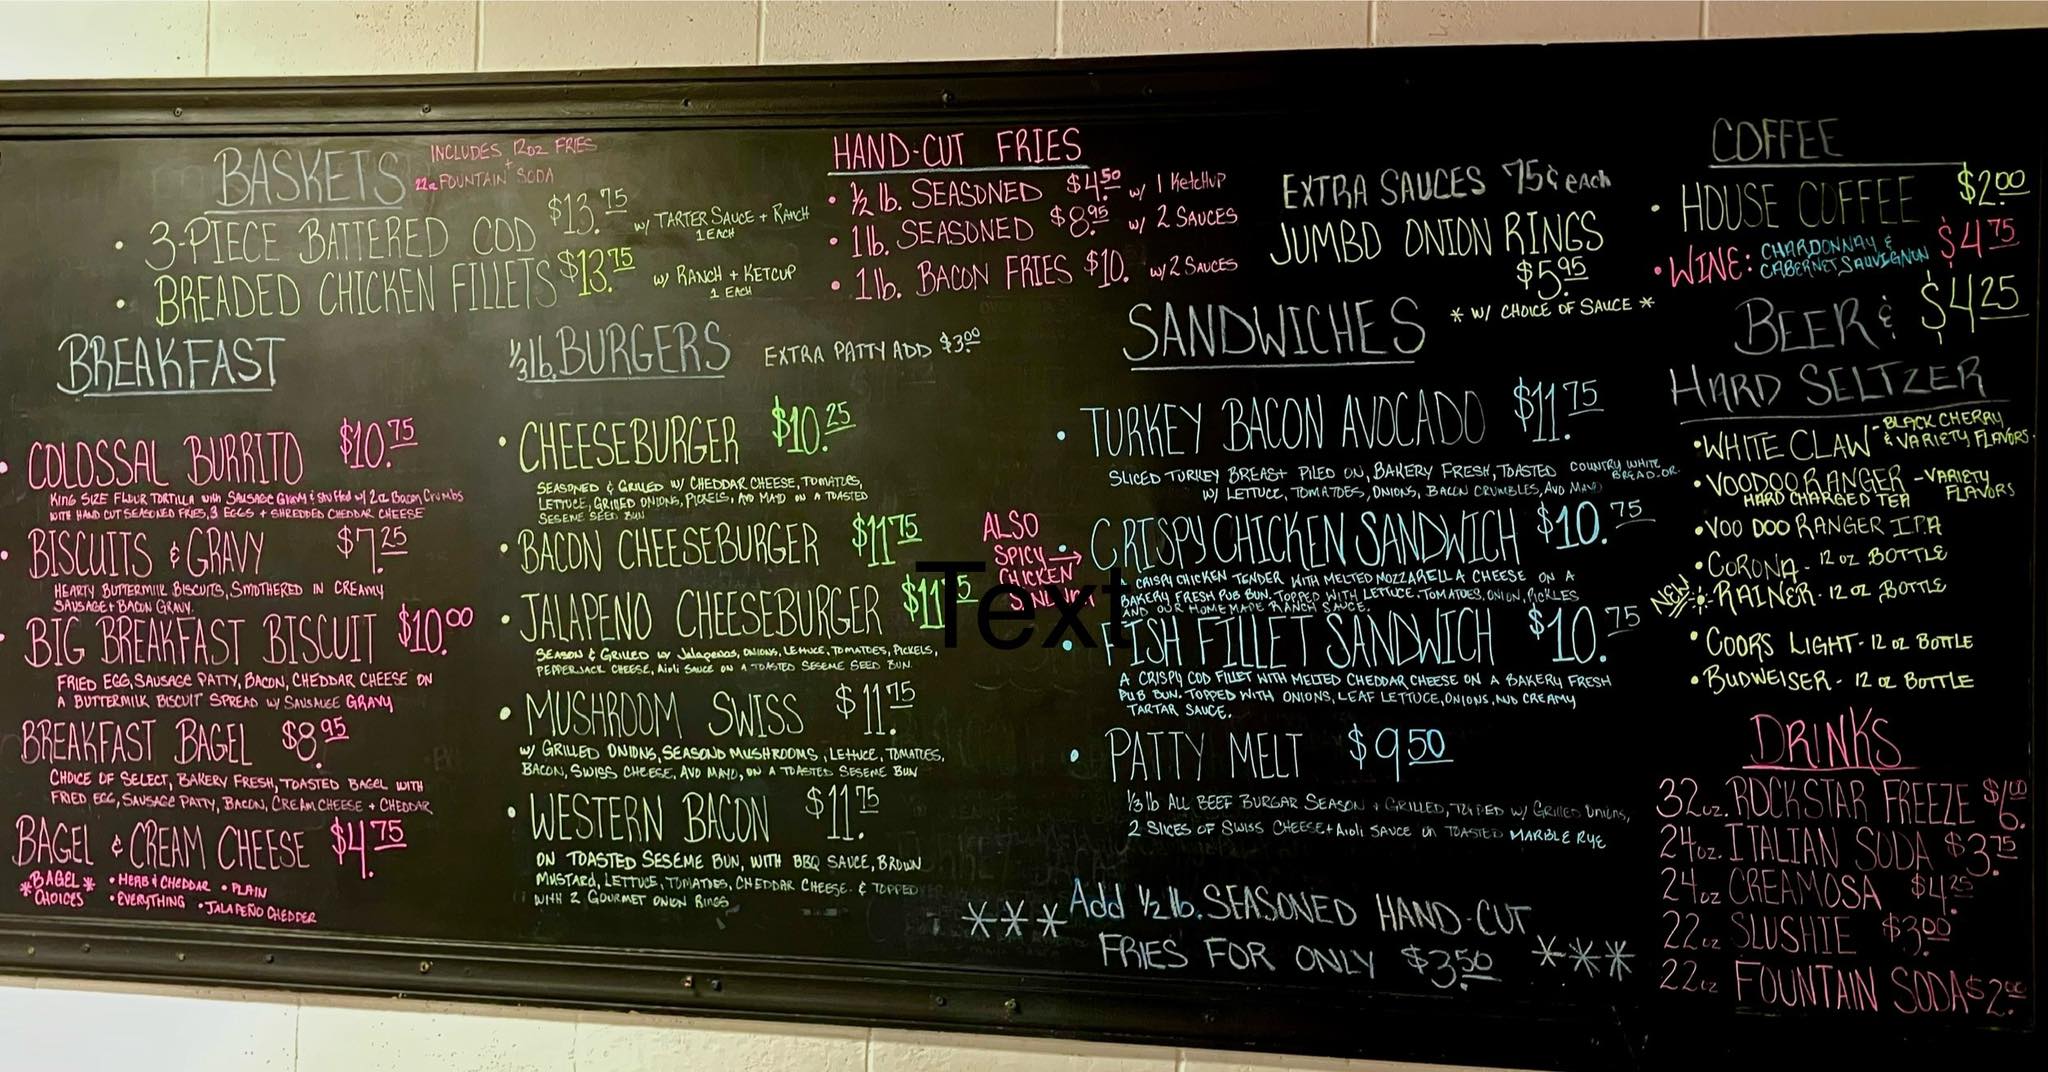 BASKETS
INCLUDES 12oz FRIES
+
22oz FOUNTAIN SODA
• 3-PIECE BATTERED COD $13.75 w/ TARTER SAUCE + RANCH
1 EACH
• BREADED CHICKEN FILLETS $13.75 w/ RANCH + KETCUP
1 EACH
HAND-CUT FRIES
• 1/2 lb. SEASONED $4.50 w/ 1 KETCHUP
• 1 lb. SEASONED $8.95 w/ 2 SAUCES
• 1 lb. BACON FRIES $10. w/ 2 SAUCES
EXTRA SAUCES 75¢ EACH
JUMBO ONION RINGS
$5.95
* W/ CHOICE OF SAUCE *
COFFEE
• HOUSE COFFEE $2.00
• WINE: CHARDONNAY & $4.75
CABERNET SAUVIGNON
BREAKFAST
• COLOSSAL BURRITO $10.75
KING SIZE FLOUR TORTILLA WITH SAUSAGE GRAVY & STUFFED W/ 2oz BACON CRUMBS
WITH HAND CUT SEASONED FRIES, 3 EGGS + SHREDDED CHEDDAR CHEESE
• BISCUITS & GRAVY $7.25
HEARTY BUTTERMILK BISCUITS, SMOTHERED IN CREAMY
SAUSAGE + BACON GRAVY.
• BIG BREAKFAST BISCUIT $10.00
FRIED EGG, SAUSAGE PATTY, BACON, CHEDDAR CHEESE ON
A BUTTERMILK BISCUIT SPREAD W/ SAUSAGE GRAVY
BREAKFAST BAGEL $8.95
CHOICE OF SELECT, BAKERY FRESH, TOASTED BAGEL WITH
FRIED EGG, SAUSAGE PATTY, BACON, CREAM CHEESE + CHEDDAR
BAGEL & CREAM CHEESE $4.75
*BAGEL* • HERB & CHEDDAR • PLAIN
CHOICES • EVERYTHING • JALAPEÑO CHEDDER
1/3 lb. BURGERS EXTRA PATTY ADD $3.00
• CHEESEBURGER $10.25
SEASONED & GRILLED W/ CHEDDAR CHEESE, TOMATOES,
LETTUCE, GRILLED ONIONS, PICKELS, AND MAYO ON A TOASTED
SESEME SEED BUN
• BACON CHEESEBURGER $11.75
• JALAPENO CHEESEBURGER $11.75
SEASON & GRILLED W/ JALAPENOS, ONIONS, LETTUCE, TOMATOES, PICKELS,
PEPPERJACK CHEESE, AIOLI SAUCE ON A TOASTED SESEME SEED BUN.
• MUSHROOM SWISS $11.75
W/ GRILLED ONIONS, SEASOND MUSHROOMS, LETTUCE, TOMATOES,
BACON, SWISS CHEESE, AND MAYO, ON A TOASTED SESEME BUN
• WESTERN BACON $11.75
ON TOASTED SESEME BUN, WITH BBQ SAUCE, BROWN
MUSTARD, LETTUCE, TOMATOES, CHEDDAR CHEESE & TOPPED
WITH 2 GOURMET ONION RINGS
SANDWICHES
• TURKEY BACON AVOCADO $11.75
SLICED TURKEY BREAST PILED ON, BAKERY FRESH, TOASTED COUNTRY WHITE
BREAD.
W/ LETTUCE, TOMATOES, ONIONS, BACON CRUMBLES, AND MAYO
ALSO
SPICY
CHICKEN
• CRISPY CHICKEN SANDWICH $10.75
A CRISPY CHICKEN TENDER WITH MELTED MOZZARELLA CHEESE ON A
BAKERY FRESH PUB BUN. TOPPED WITH LETTUCE, TOMATOES, ONION, PICKLES
AND OUR HOMEMADE RANCH SAUCE.
• FISH FILLET SANDWICH $10.75
A CRISPY COD FILLET WITH MELTED CHEDDAR CHEESE ON A BAKERY FRESH
PUB BUN. TOPPED WITH ONIONS, LEAF LETTUCE, ONIONS, AND CREAMY
TARTAR SAUCE.
• PATTY MELT $9.50
1/3 lb ALL BEEF BURGAR SEASON + GRILLED, TOPPED W/ GRILLED ONIONS,
2 SLICES OF SWISS CHEESE + AIOLI SAUCE ON TOASTED MARBLE RYE
*** Add 1/2 lb. SEASONED HAND-CUT
FRIES FOR ONLY $3.50 ***
Text
BEER & $4.25
HARD SELTZER
• WHITE CLAW - BLACK CHERRY
& VARIETY FLAVORS.
• VOODOO RANGER - VARIETY
HARD CHARGED TEA FLAVORS
• VOO DOO RANGER I.P.A
• CORONA - 12 OZ BOTTLE
NEW RAINER - 12 OZ BOTTLE
• COORS LIGHT - 12 OZ BOTTLE
• BUDWEISER - 12 OZ BOTTLE
DRINKS
32 oz. ROCKSTAR FREEZE $6.00
24 oz. ITALIAN SODA $3.75
24 oz CREAMOSA $4.25
22 oz SLUSHIE $3.00
22 oz FOUNTAIN SODA $2.00